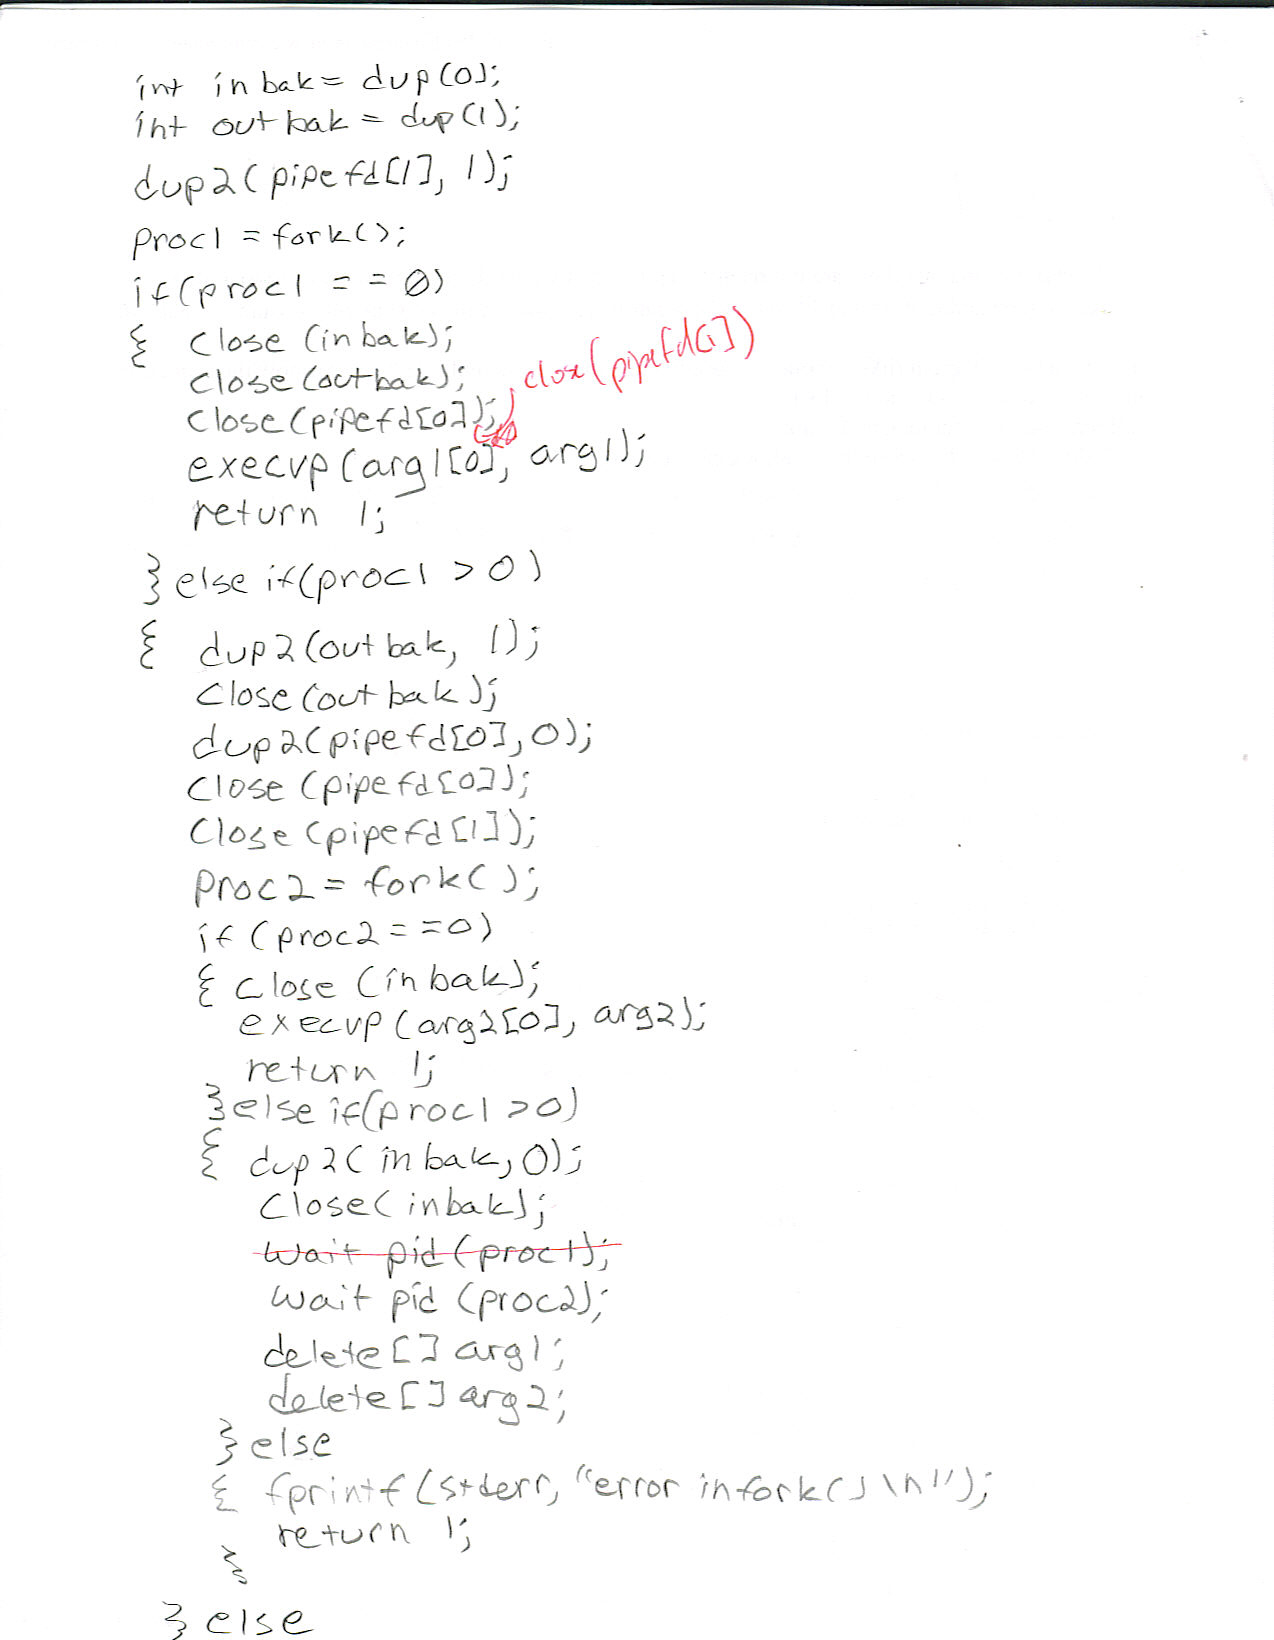 int inbak = dup(0);
int outbak = dup(1);
dup2(pipefd[1], 1);
proc1 = fork();
if(proc1 == 0)
{ close(inbak);
close(outbak);
close(pipefd[0]); close(pipefd[1])
execvp(arg1[0], arg1);
return 1;
} else if(proc1 > 0)
{ dup2(outbak, 1);
close(outbak);
dup2(pipefd[0], 0);
close(pipefd[0]);
close(pipefd[1]);
proc2 = fork();
if (proc2 == 0)
{ close(inbak);
execvp(arg2[0], arg2);
return 1;
} else if(proc1 > 0)
{ dup2(inbak, 0);
close(inbak);
wait pid(proc1);
wait pid(proc2);
delete[] arg1;
delete[] arg2;
} else
{ fprintf(stderr, "error in fork() \n");
return 1;
}
} else